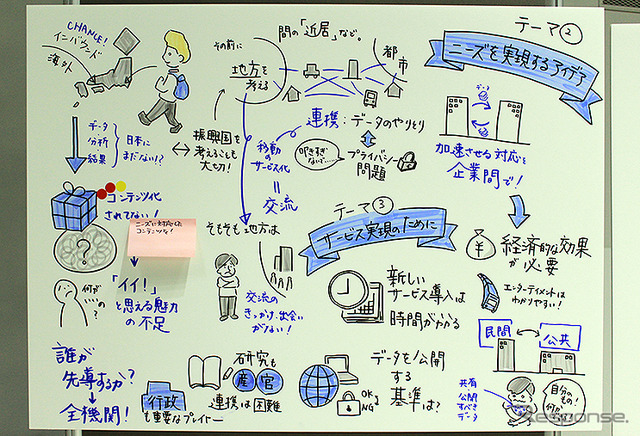 テーマ②
ニーズを実現するアイデア
CHANCE!
インバウンド
海外
データ
分析
結果
日本に
まだない!?
コンテンツ化
されてない!
?
ニーズに対応した
コンテンツな!
何が
…の?
「イイ!」
と思える魅力
の不足
誰が
先導するか?
全機関!
その前に
地方を
考え
間の「近居」など。
都市
振興国を
考えることも
大切!
移動の
サービス化
=
交流
連携:データのやりとり
叩きすぎ
ないで…
プライバシー
問題
データ
加速させる対応を
企業間で!
¥
経済的な効果
が必要
エンターテイメントは
わかりやすい!
民間
公共
共有
公開
すべき
データ
自分の
もの!
テーマ③
サービス実現のために
新しい
サービス導入は
時間がかかる
そもそも地方は
交流の
きっかけ、出会い
がない!
研究も
産官
連携は困難
行政
も重要なプレイヤー
データを公開
する
基準は?
OK
NG
Response.